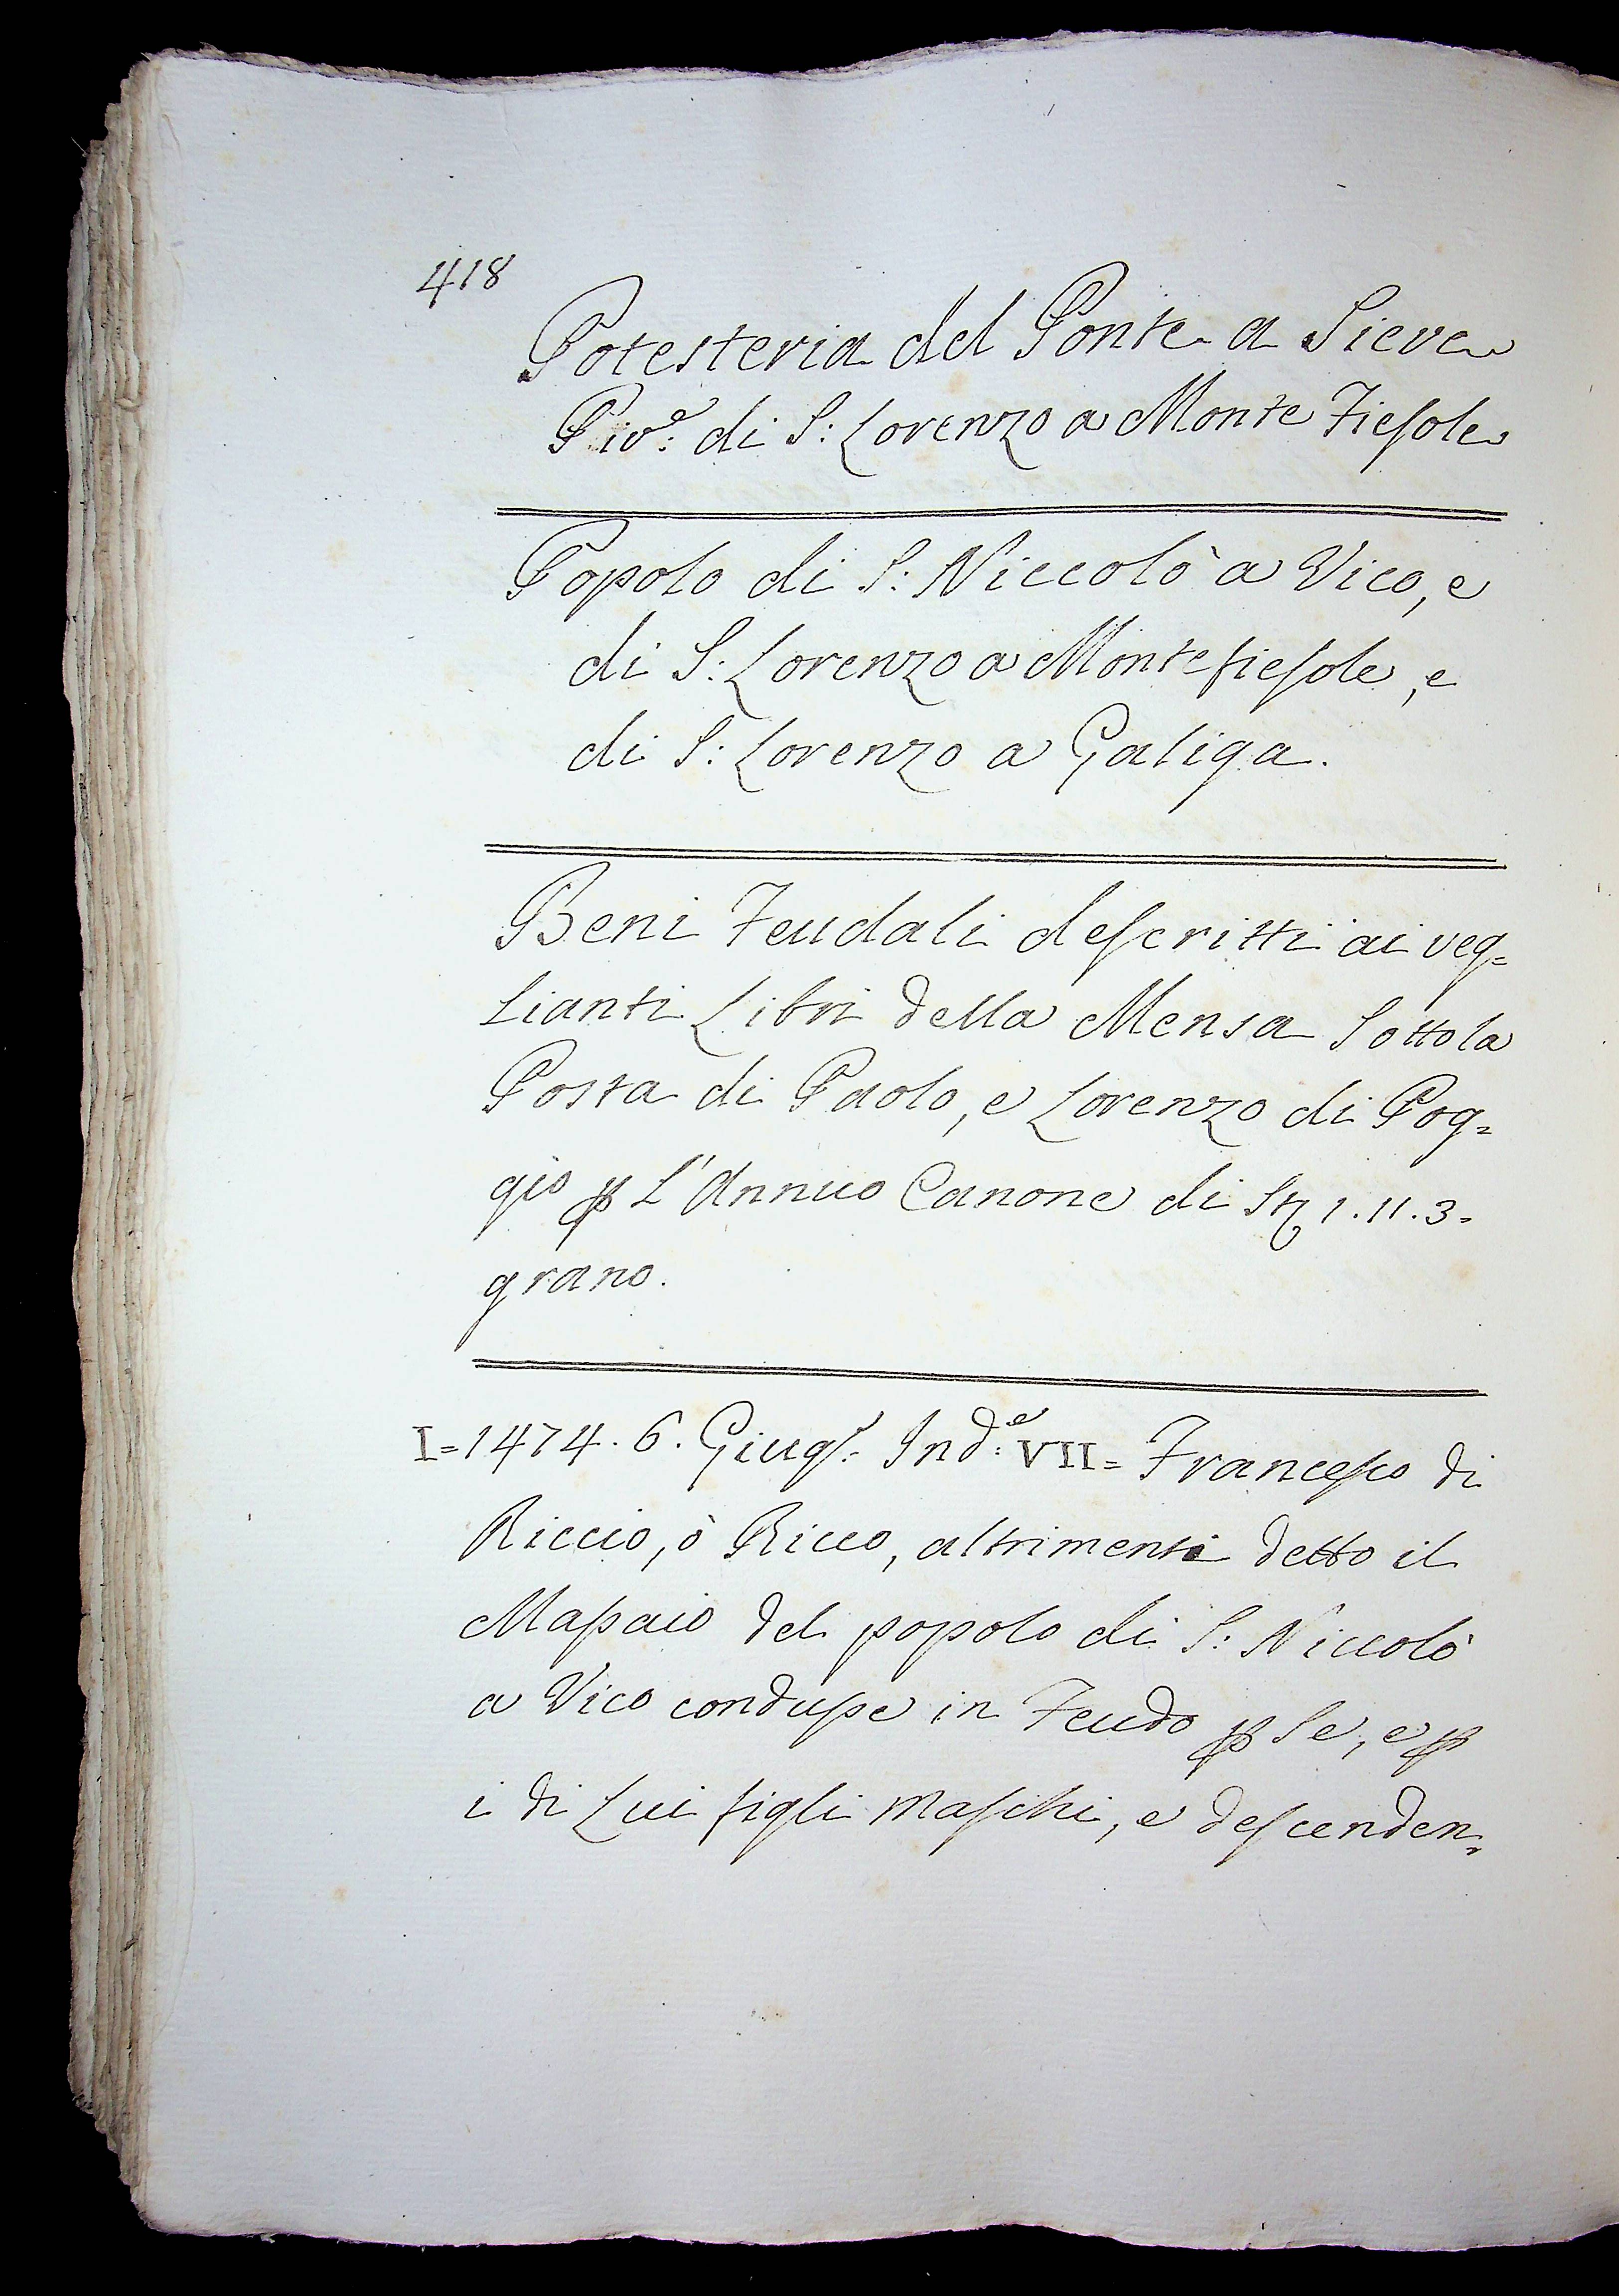 418
Potesteria del Ponte a Sieve
Piv.e di S: Lorenzo a Monte Fiesole
Popolo di S: Niccolò a Vico, e
di S: Lorenzo a Montefiesole, e
di S: Lorenzo a Galiga.
Beni Feudali descritti ai veg=
lianti Libri della Mensa Sotto la
Posta di Paolo, e Lorenzo di Pog=
gio p L'Annuo Canone di St 1.11.3=
grano.
I=1474. 6. Giug.o Ind.e VII= Francesco di
Riccio, ò Ricco, altrimenti detto il
Massaio del popolo di S: Niccolò
a Vico condusse in Feudo p Se, e p
i di Lui figli maschi, e descenden=